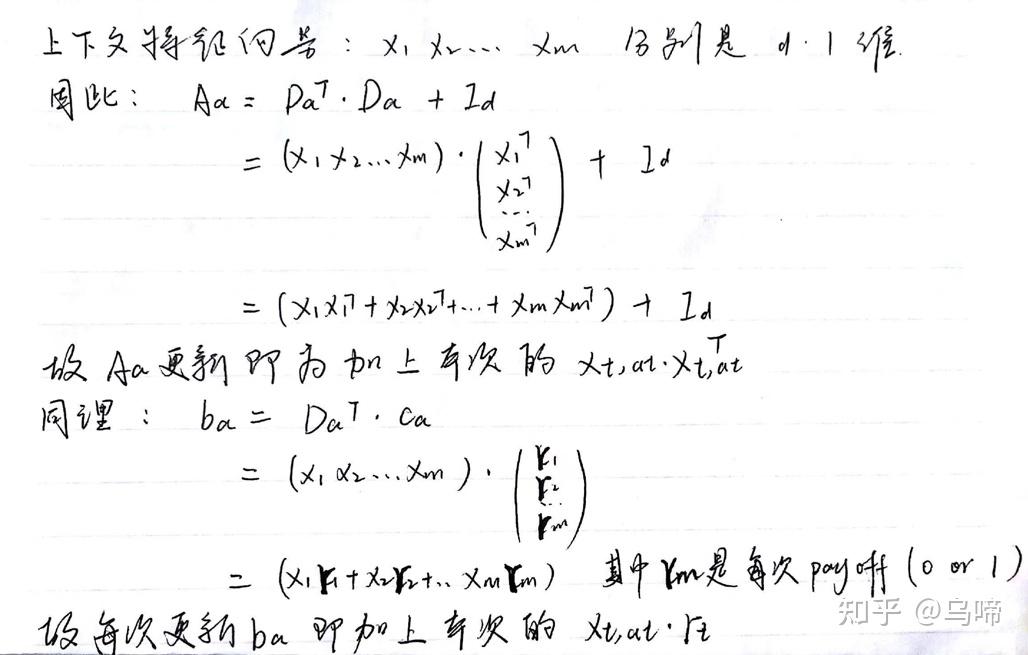 上下文特征向量: x₁ x₂... xₘ 分别是 d·1 维.
因此: Aa = Daᵀ·Da + Id
= (x₁ x₂...xₘ)·(x₁ᵀ x₂ᵀ ... xₘᵀ) + Id
= (x₁x₁ᵀ + x₂x₂ᵀ+...+ xₘxₘᵀ) + Id
故 Aa 更新即为加上本次的 xt,at·xt,atᵀ
同理: ba = Daᵀ·Ca
= (x₁ x₂...xₘ)·(r₁ r₂ ... rₘ)
= (x₁r₁+x₂r₂+.. xₘrₘ) 其中 rₘ是每次 payoff (0 or 1)
故每次更新 ba 即加上本次的 xt,at·rt
知乎 @乌啼